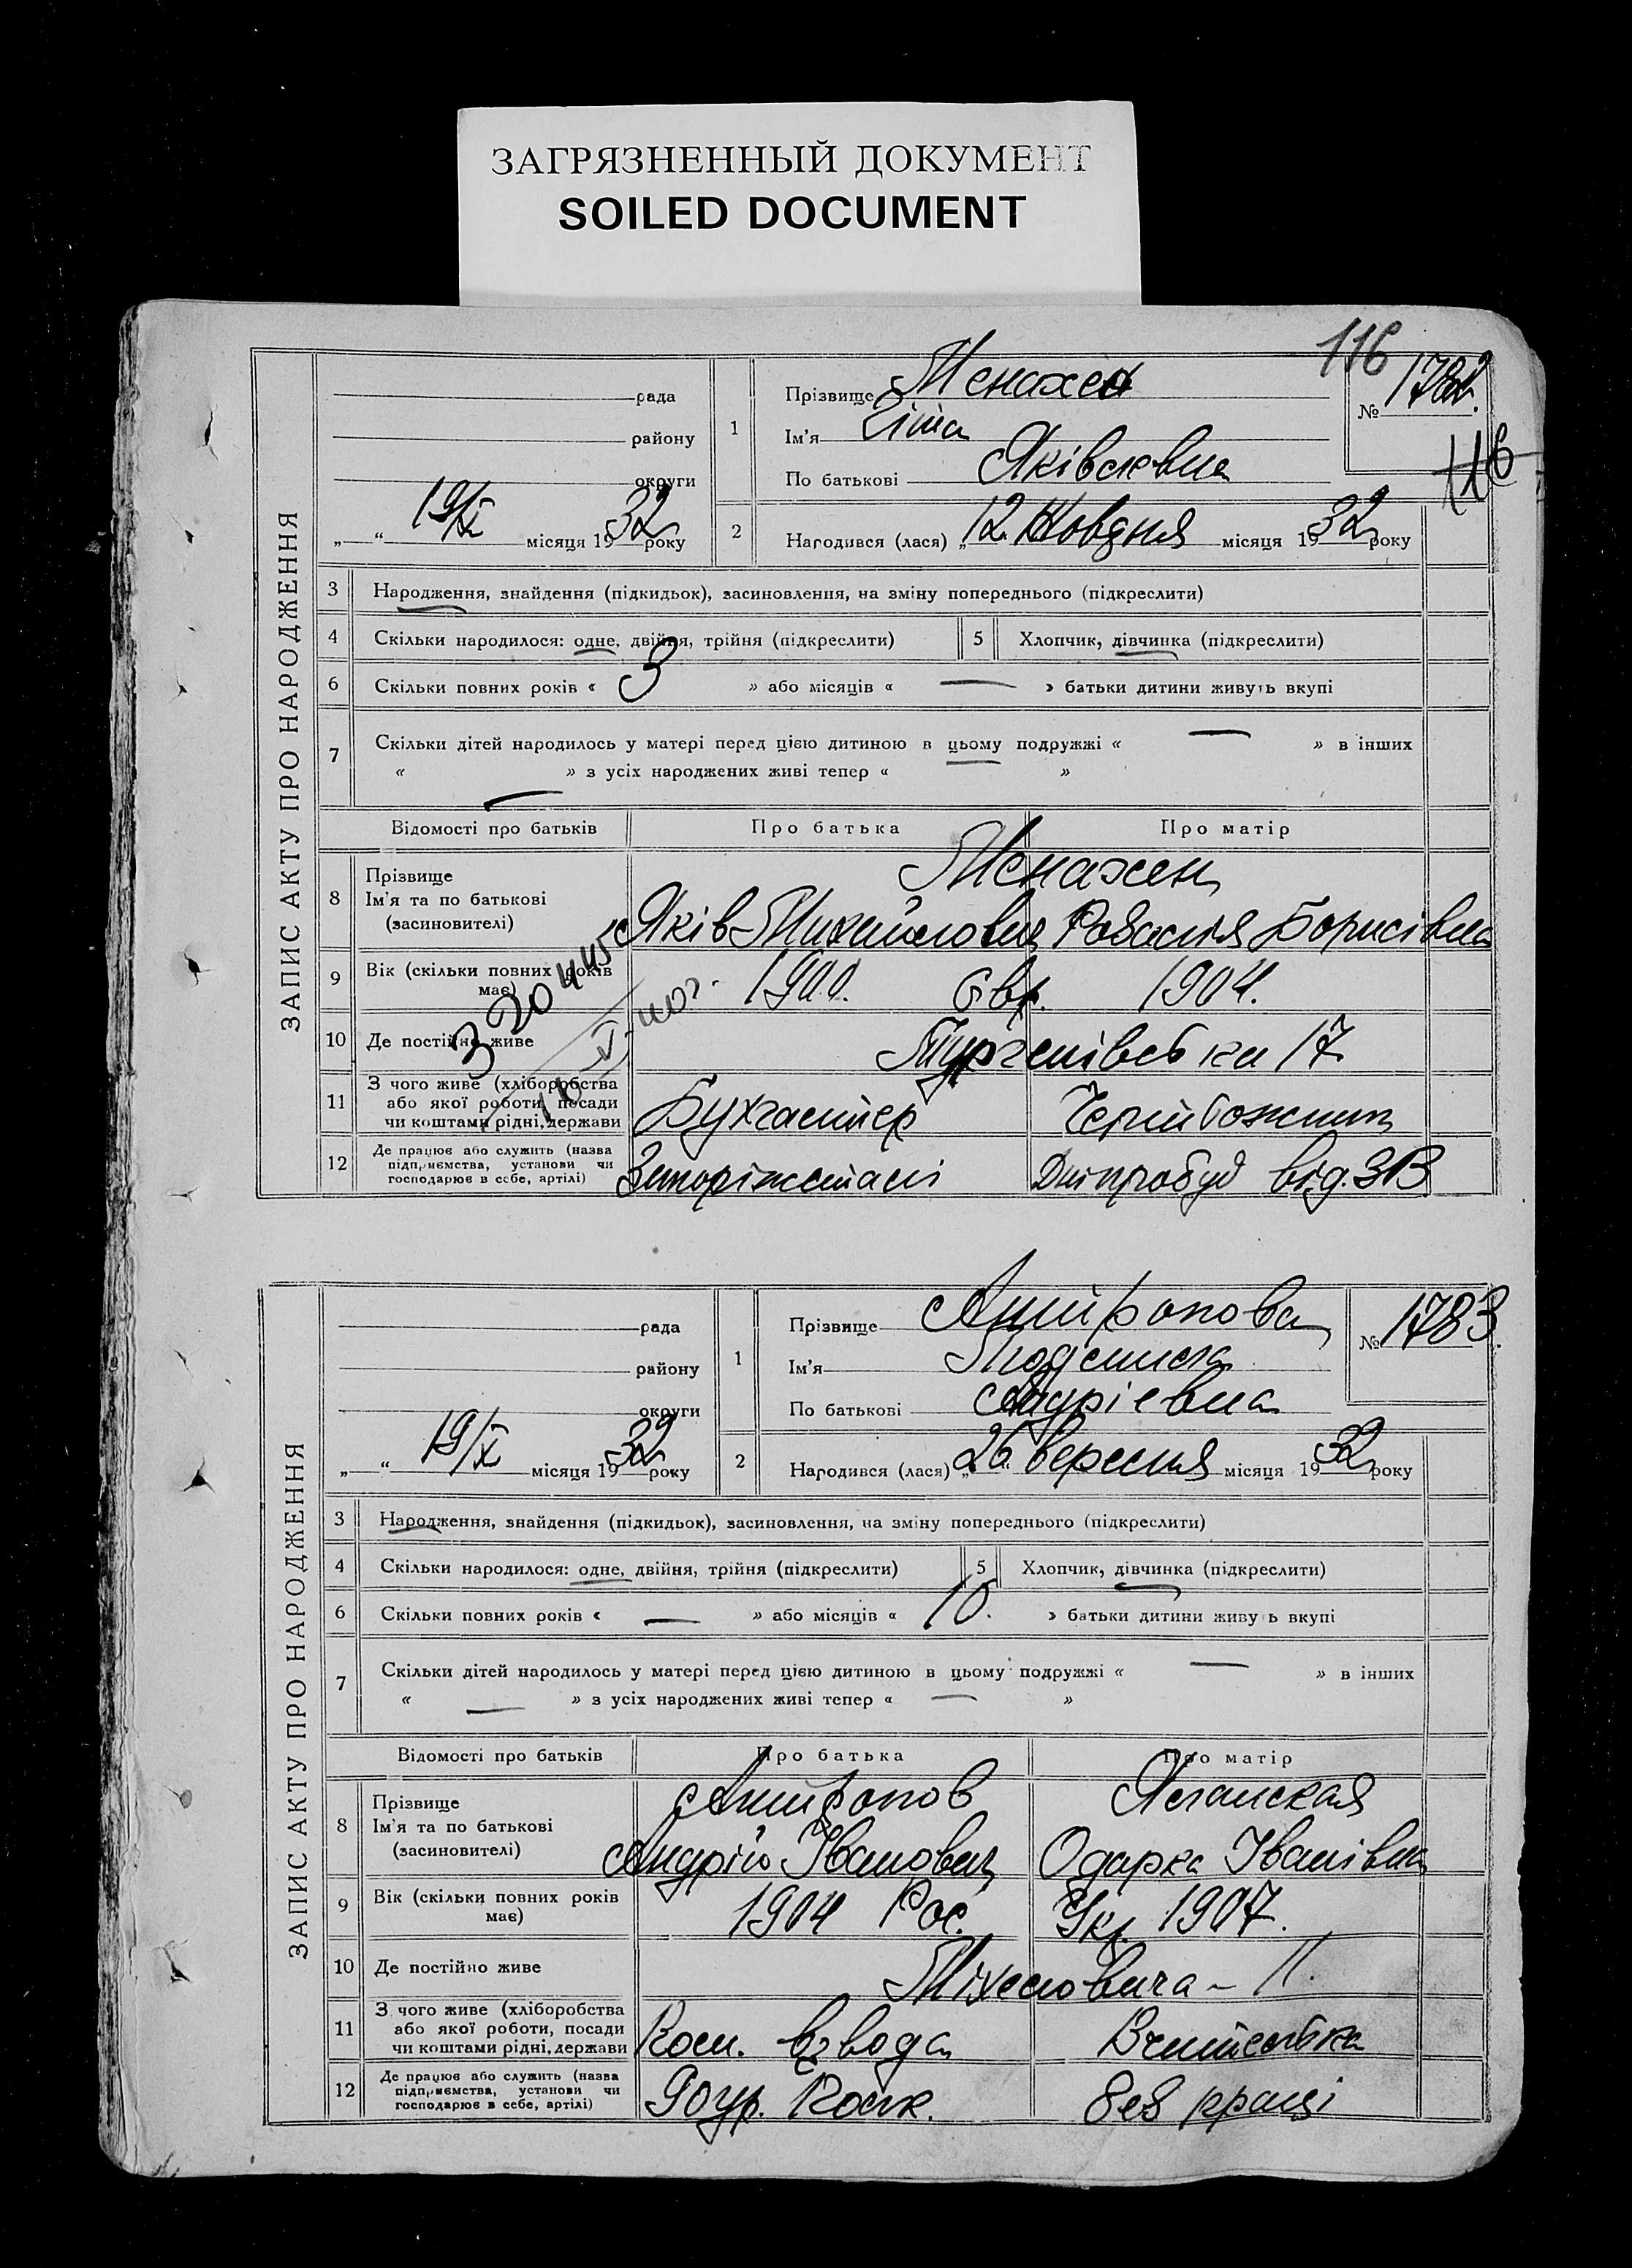 ЗАГРЯЗНЕННЫЙ ДОКУМЕНТ
SOILED DOCUMENT
116
ЗАПИС АКТУ ПРО НАРОДЖЕННЯ
рада
району
округи
„ “ 19/X місяця 1932 року
1
Прізвище Менахен
Ім'я
По батькові Яківлевна
№ 1782.
116
2
Народився (лася) „12 Жовдня місяця 1932 року
3 Народження, знайдення (підкидьок), засиновлення, на зміну попереднього (підкреслити)
4 Скільки народилося: одне, двійня, трійня (підкреслити)
5 Хлопчик, дівчинка (підкреслити)
6 Скільки повних років « 3 » або місяців « — » батьки дитини живуть вкупі
7 Скільки дітей народилось у матері перед цією дитиною в цьому подружжі « — » в інших
« — » з усіх народжених живі тепер « »
Відомості про батьків Про батька Про матір
8 Прізвище
Ім'я та по батькові
(засновителі)
Менахен
Яків Михайлович Розалія Борисівна
9 Вік (скільки повних років
має)
1900. Євр. 1904.
10 Де постійно живе
Тургенівська 17
11 З чого живе (хліборобства
або якої роботи, посади
чи коштами рідні, держави
Бухгалтер
12 Де працює або служить (назва
підприємства, установи чи
господарює в себе, артілі)
Запоріжсталі Дніпробуд від. ЗВ
ЗАПИС АКТУ ПРО НАРОДЖЕННЯ
рада
району
округи
„ “ 19/X місяця 1932 року
1
Прізвище Антропова
Ім'я Людмила
По батькові Андріевна
№ 1783.
2
Народився (лася) „26 вересня місяця 1932 року
3 Народження, знайдення (підкидьок), засиновлення, на зміну попереднього (підкреслити)
4 Скільки народилося: одне, двійня, трійня (підкреслити)
5 Хлопчик, дівчинка (підкреслити)
6 Скільки повних років « — » або місяців « 10. » батьки дитини живуть вкупі
7 Скільки дітей народилось у матері перед цією дитиною в цьому подружжі « — » в інших
« — » з усіх народжених живі тепер « — »
Відомості про батьків Про батька Про матір
8 Прізвище
Ім'я та по батькові
(засиновителі)
Антропов
Андрій Іванович Одарка Іванівна
9 Вік (скільки повних років
має)
1904 Рос. Укр. 1907.
10 Де постійно живе
Міхеловича - 11.
11 З чого живе (хліборобства
або якої роботи, посади
чи коштами рідні, держави
Ком. взвода Вчителька
12 Де працює або служить (назва
підприємства, установи чи
господарює в себе, артілі)
без праці